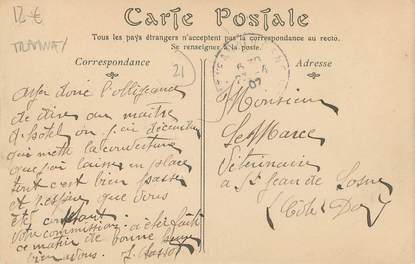 12 €
TRAMWAY
Carte Postale
Tous les pays étrangers n'acceptent pas la correspondance au recto.
Se renseigner à la poste.
Correspondance
Adresse
21
ayez donc l'obligeance
de dire au maître
d'hôtel où j'ai
qui mette la couverture
que j'ai laissée en place
tout c'est bien passé
et j'espère que vous
été
votre commission a été faite
ce matin de bonne heure
bien à vous.
Monsieur
Le Marec
Vétérinaire
à St Jean de Losne
(Côte D'or)